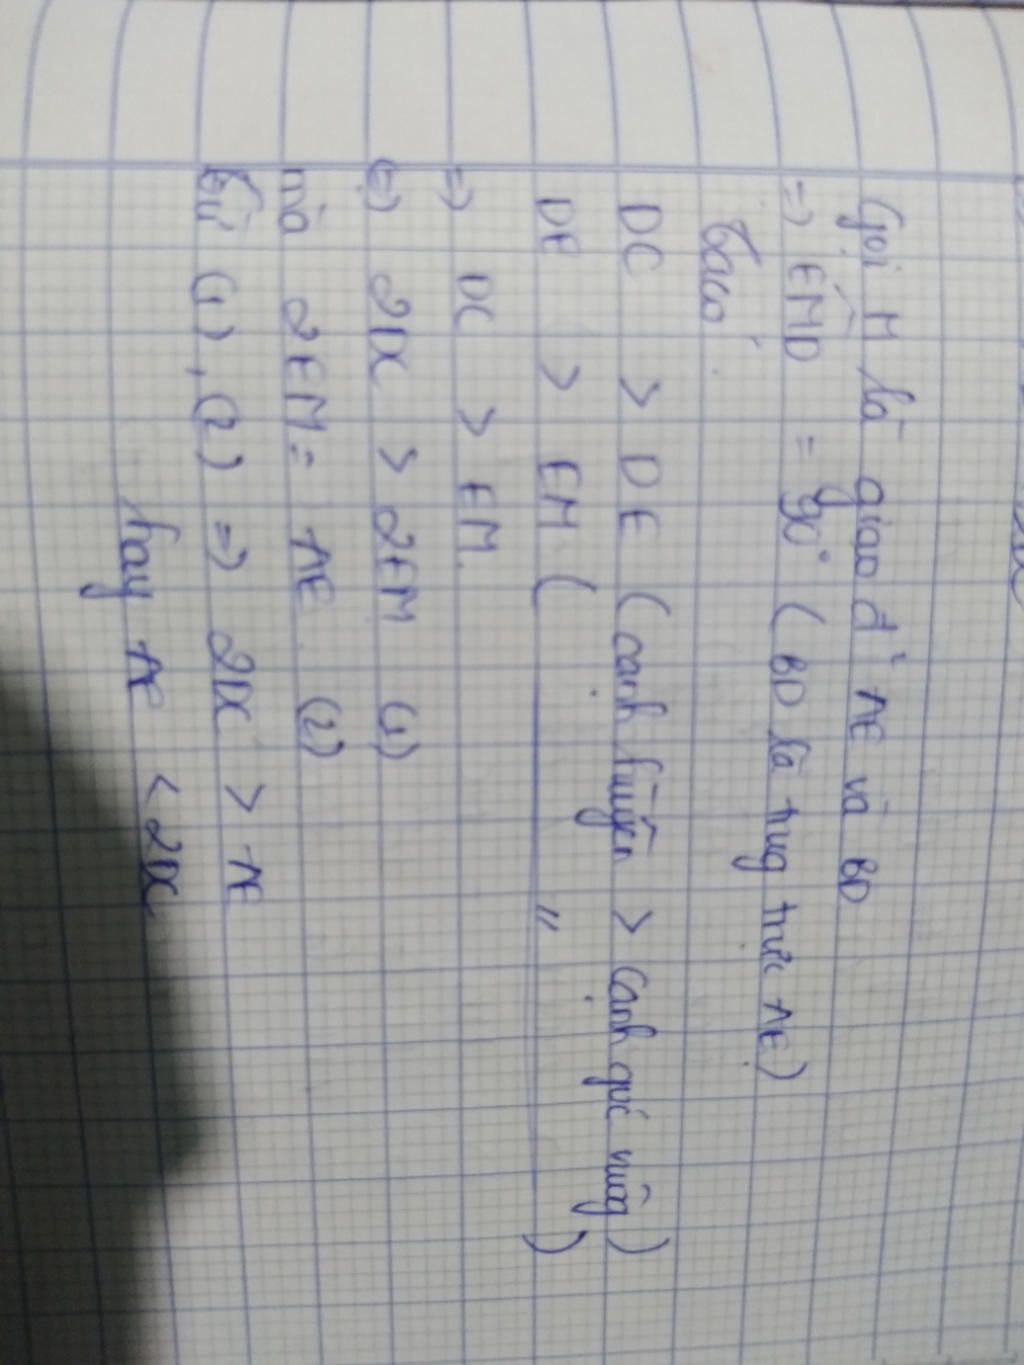 Gọi M là giao đ² AE và BD
=> EMD = 90° (BD là trung trực AE)
Ta có:
DC > DE (cạnh huyền > cạnh góc vuông)
DE > EM ( " )
=> DC > EM.
<=> 2DC > 2EM (1)
mà 2EM = AE (2)
Từ (1), (2) => 2DC > AE
hay AE < 2DC